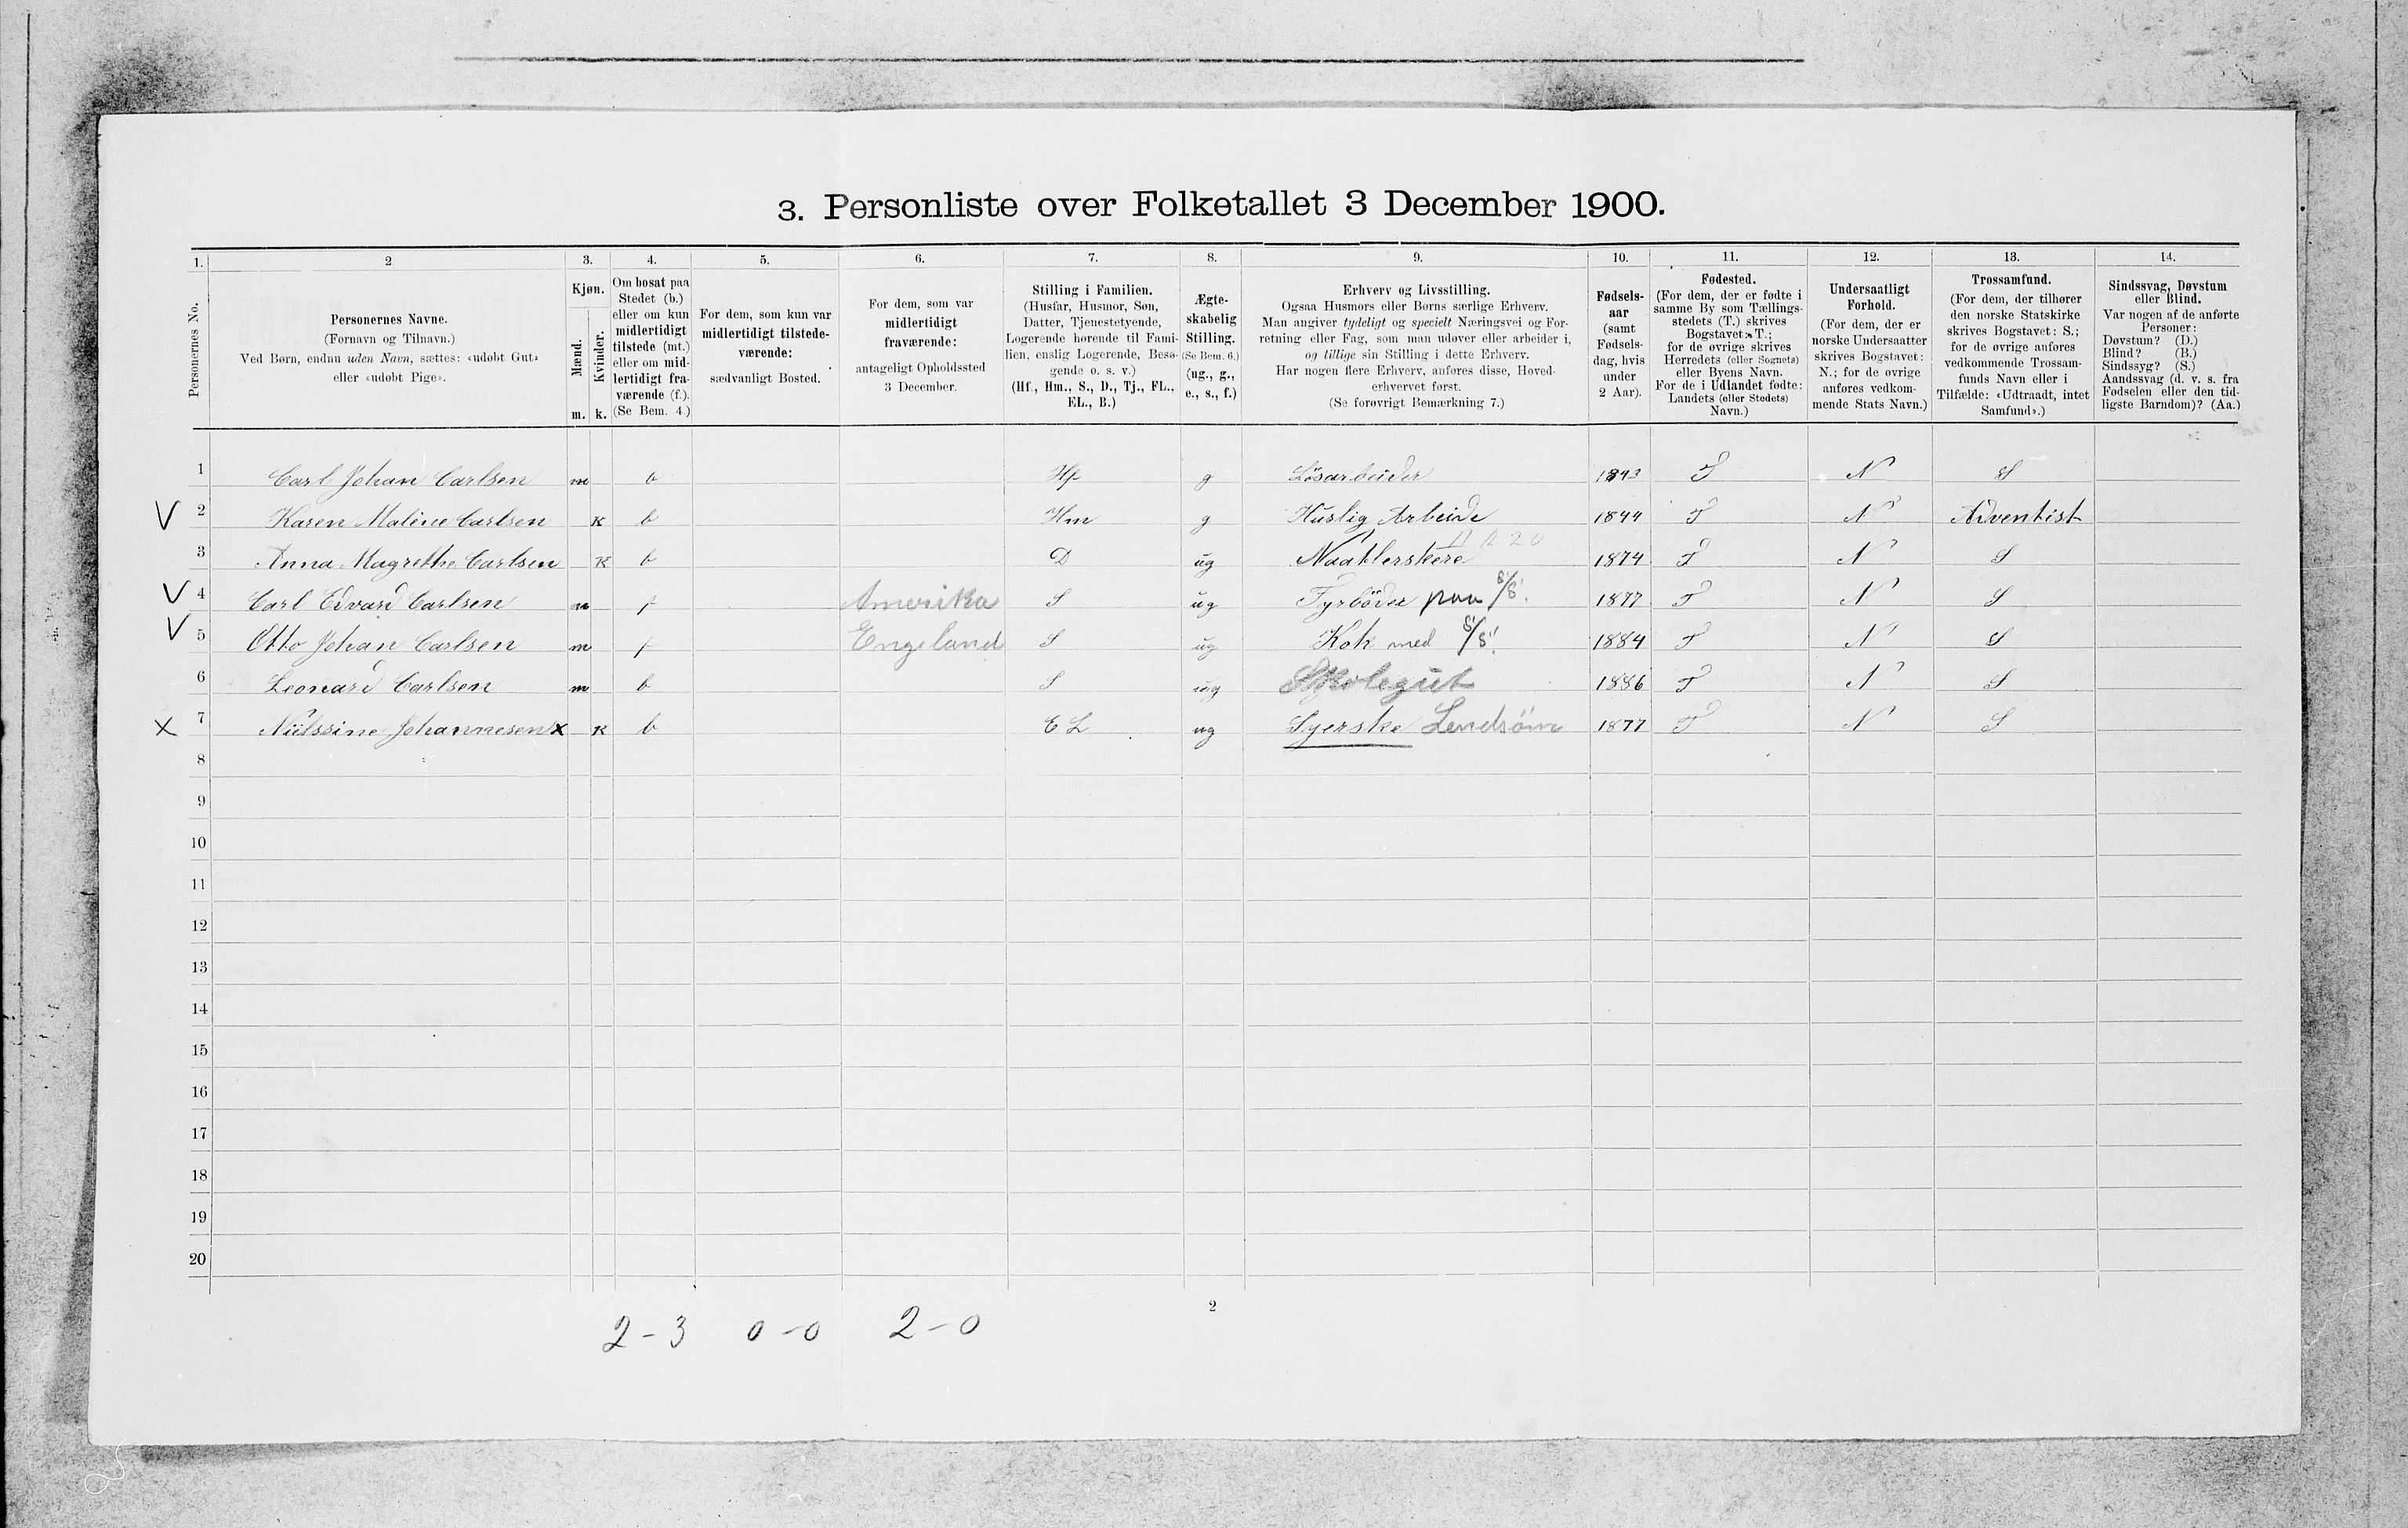 3. Personliste over Folketallet 3 December 1900.
1. 2 3. 4. 5. 6. 7. 8. 9. 10. 11. 12. 13. 14.
Personernes No.
Personernes Navne.
(Fornavn og Tilnavn.)
Ved Børn, endnu uden Navn, sættes: «udøbt Gut»
eller «udøbt Pige».
Kjøn.
Mænd.
Kvinder.
m. k.
Om bosat paa
Stedet (b.)
eller om kun
midlertidigt
tilstede (mt.)
eller om mid-
lertidigt fra-
værende (f.).
(Se Bem. 4.)
For dem, som kun var
midlertidigt tilstede-
værende:
sædvanligt Bosted.
For dem, som var
midlertidigt
fraværende:
antageligt Opholdssted
3 December.
Stilling i Familien.
(Husfar, Husmor, Søn,
Datter, Tjenestetyende,
Logerende hørende til Fami-
lien, enslig Logerende, Besø-
gende o. s. v.)
(Hf., Hm., S., D., Tj., FL.,
EL., B.)
Ægte-
skabelig
Stilling.
(Se Bem. 6.)
(ug., g.,
e., s., f.)
Erhverv og Livsstilling.
Ogsaa Husmors eller Børns særlige Erhverv.
Man angiver tydeligt og specielt Næringsvei og For-
retning eller Fag, som man udøver eller arbeider i,
og tillige sin Stilling i dette Erhverv.
Har nogen flere Erhverv, anføres disse, Hoved-
erhvervet først.
(Se forøvrigt Bemærkning 7.)
Fødsels-
aar
(samt
Fødsels-
dag, hvis
under
2 Aar).
Fødested.
(For dem, der er fødte i
samme By som Tællings-
stedets (T.) skrives
Bogstavet: T.;
for de øvrige skrives
Herredets (eller Sognets)
eller Byens Navn.
For de i Udlandet fødte:
Landets (eller Stedets)
Navn.)
Undersaatligt
Forhold.
(For dem, der er
norske Undersaatter
skrives Bogstavet:
N.; for de øvrige
anføres vedkom-
mende Stats Navn.)
Trossamfund.
(For dem, der tilhører
den norske Statskirke
skrives Bogstavet: S.;
for de øvrige anføres
vedkommende Trossam-
funds Navn eller i
Tilfælde: «Udtraadt, intet
Samfund».)
Sindssvag, Døvstum
eller Blind.
Var nogen af de anførte
Personer:
Døvstum? (D.)
Blind? (B.)
Sindssyg? (S.)
Aandssvag (d. v. s. fra
Fødselen eller den tid-
ligste Barndom)? (Aa.)
1 Carl Johan Carlsen m b Hf g Løsarbeider 1843 T N S
V 2 Karen Maline Carlsen K b Hm g Huslig Arbeide 1844 T N Adventist
3 Anna Magrethe Carlsen K b D ug Naadlerskere 1874 T N S
V 4 Carl Edvard Carlsen m f Amerika S ug Fyrbøder paa S/S. 1877 T N S
V 5 Otto Johan Carlsen m f Engeland S ug Kok med S/S. 1884 T N S
6 Leonard Carlsen m b S ug Skolegut 1886 T N S
X 7 Nielssine Johannesen x K b E L ug Syerske 1877 T N S
8
9
10
11
12
13
14
15
16
17
18
19
20
2
2-3 0-0 2-0